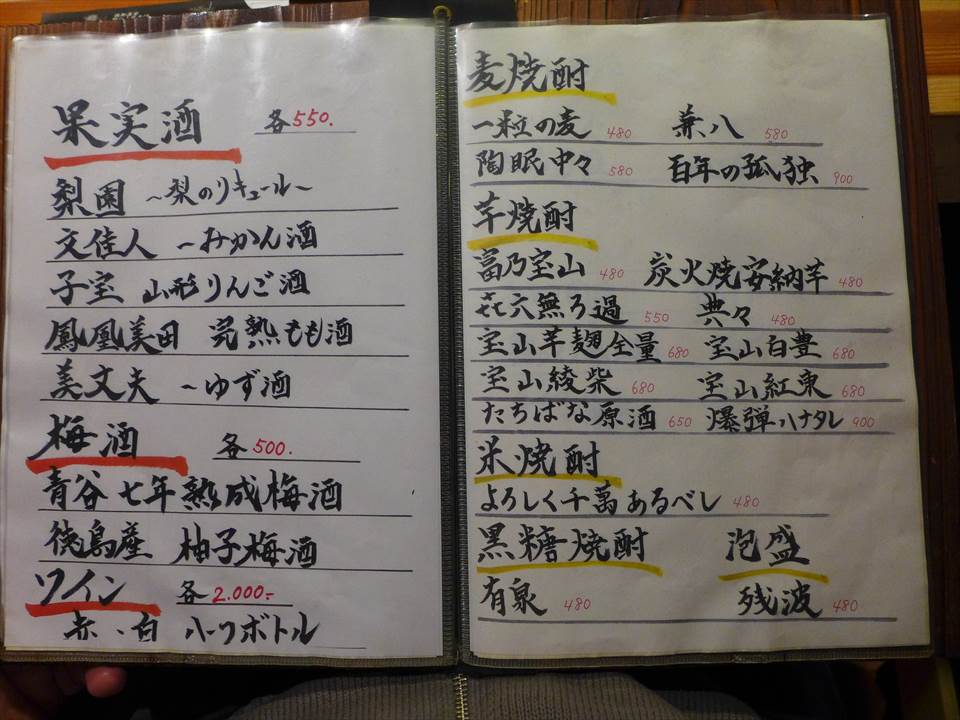 果実酒 各550.
梨園 ～梨のリキュール～
文佳人 ～みかん酒
子宝 山形りんご酒
鳳凰美田 完熟もも酒
美丈夫 ～ゆず酒
梅酒 各500.
青谷 七年熟成梅酒
徳島産 柚子梅酒
ワイン 各2.000-
赤、白 ハーフボトル
麦焼酎
一粒の麦 480 兼八 580
陶眠中々 580 百年の孤独 900
芋焼酎
富乃宝山 480 炭火焼安納芋 480
㐂六無ろ過 550 典々 480
宝山芋麹全量 680 宝山白豊 680
宝山綾柴 680 宝山紅東 680
たちばな原酒 650 爆弾ハナタレ 900
米焼酎
よろしく千萬あるべし 480
黒糖焼酎 泡盛
有泉 480 残波 480